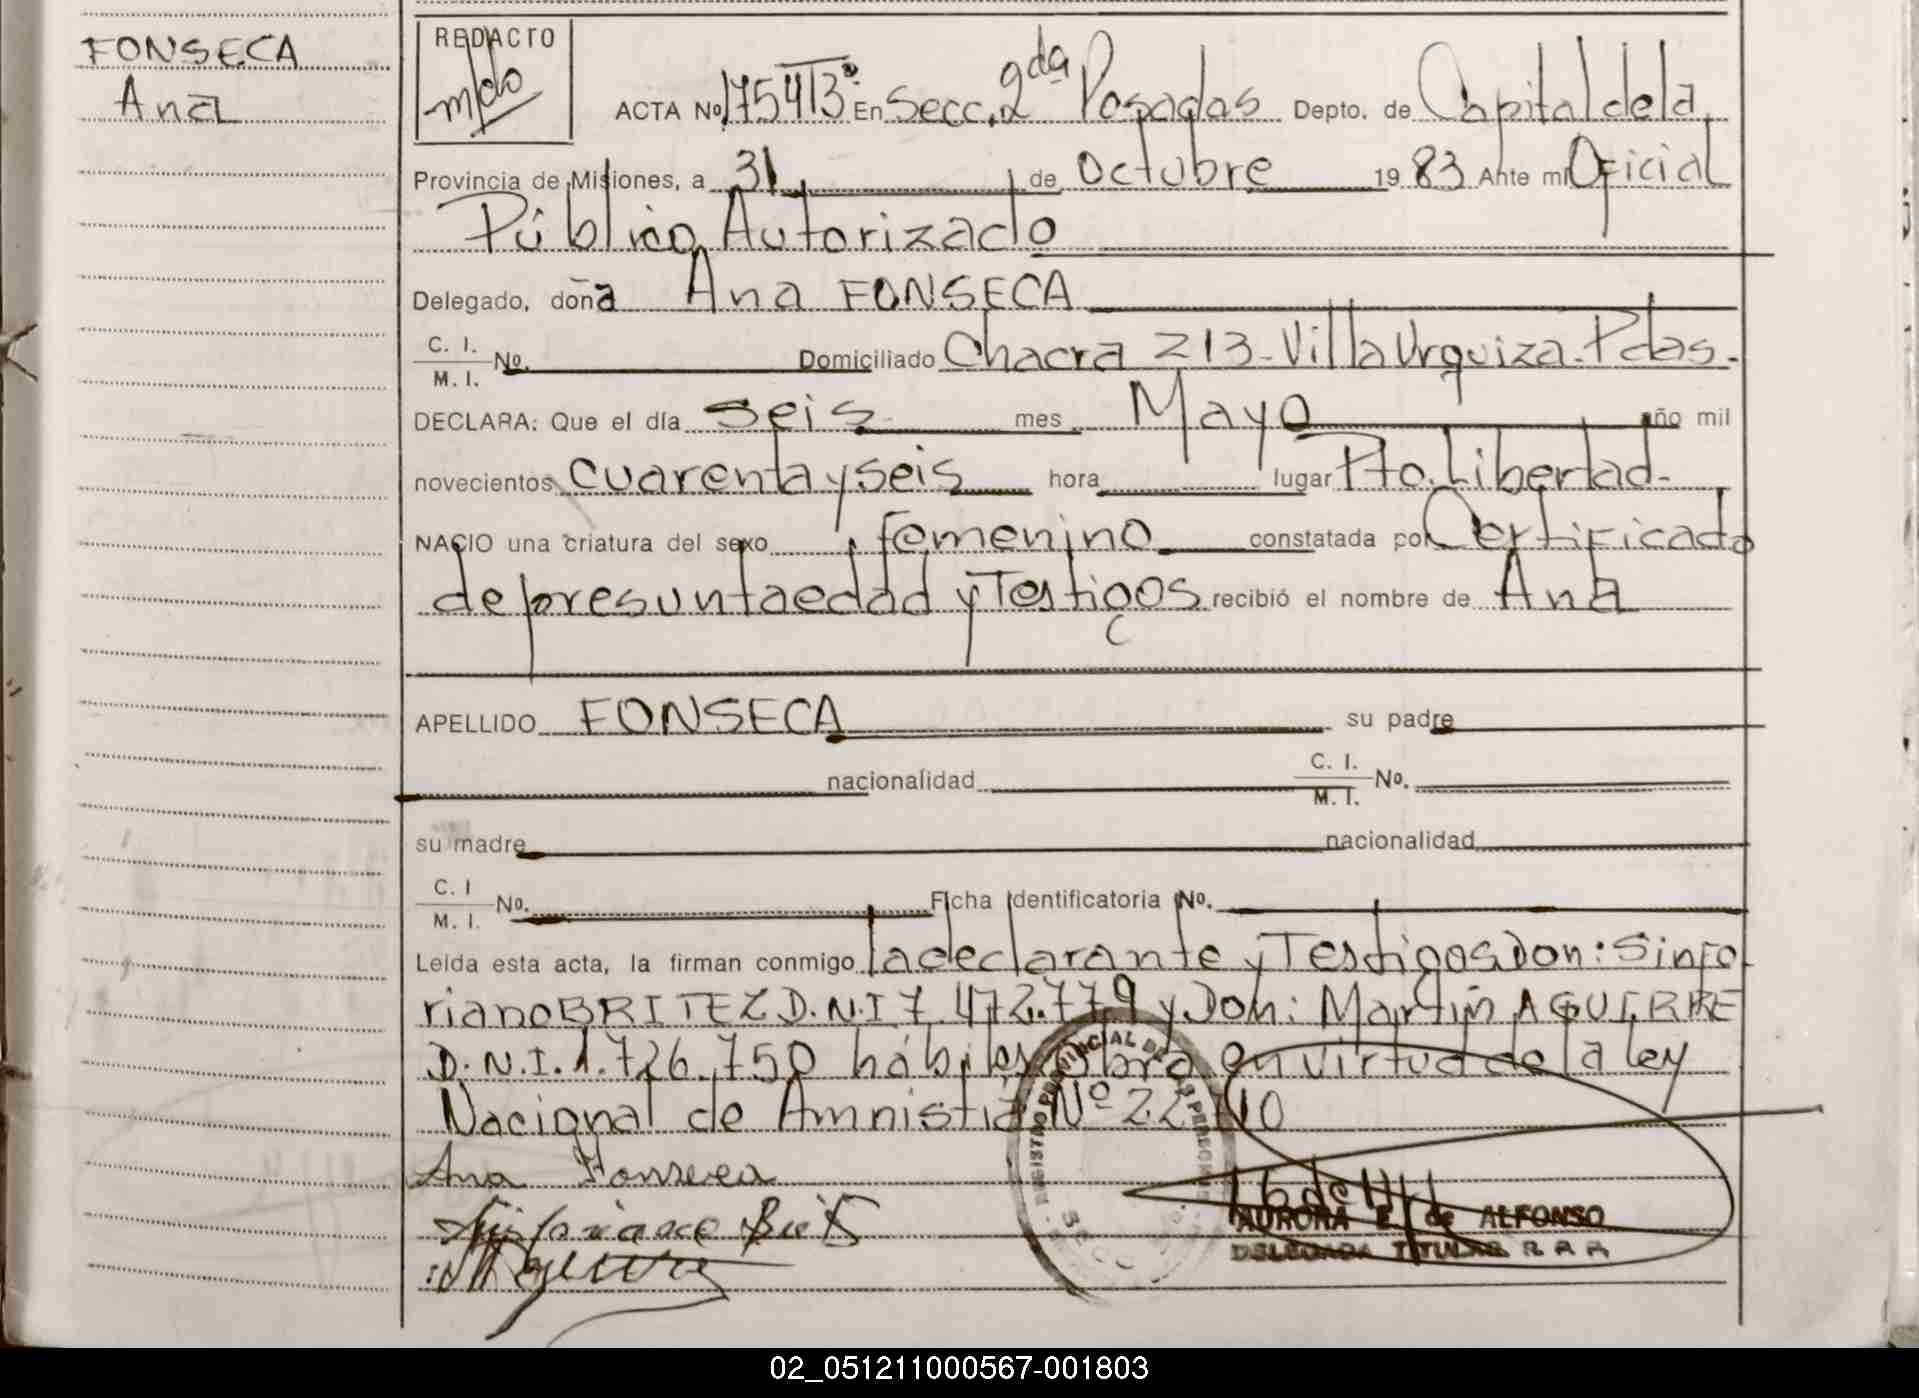 FONSECA
Ana
REDACTO
ACTA Nº 175413º En Secc. 2da Posadas Depto. de Capital de la
Provincia de Misiones, a 31 de Octubre 19 83 Ante mi Oficial
Público Autorizado
Delegado, doña Ana FONSECA
C. I.
M. I. Nº. Domiciliado Chacra 213-Villa Urquiza-Pdas.
DECLARA: Que el día seis mes Mayo año mil
novecientos cuarenta y seis hora lugar Pto. Libertad-
NACIO una criatura del sexo femenino constatada por Certificado
de presunta edad y Testigos recibió el nombre de Ana
APELLIDO FONSECA su padre
nacionalidad C. I.
M. I. Nº.
su madre nacionalidad
C. I
M. I. Nº. Ficha Identificatoria Nº.
Leída esta acta, la firman conmigo la declarante y Testigos Don: Sinfo
riano BRITEZ D.N.I 7.472.779 y Don: Martín AGUERRE
D.N.I. 1.726.750 hábiles obra en virtud de la ley
Nacional de Amnistia Nº 22
Ana Fonseca
AURORA E. de ALFONSO
DELEGADA TITULAR
02_051211000567-001803